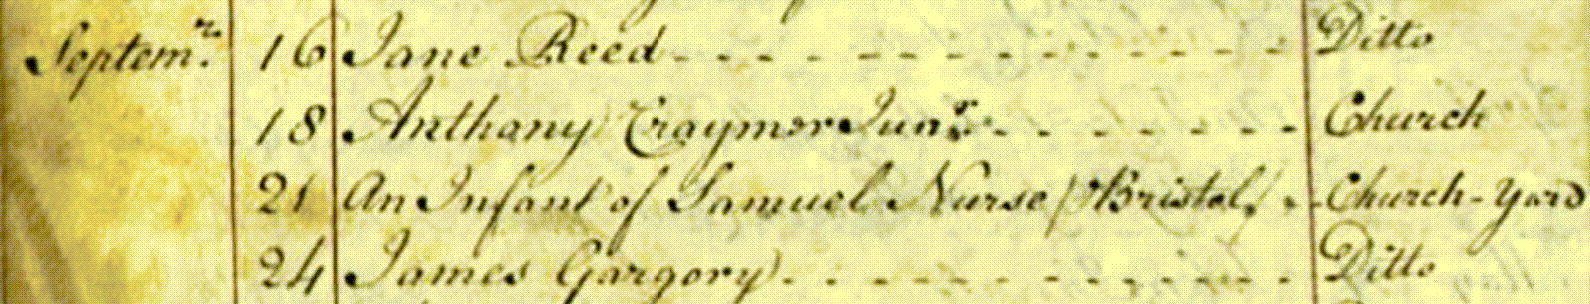 Septemr. 16 Jane Reed - - - - - - - - - - - - - - Ditto
18 Anthony Craymer Junr. - - - - - - - - Church
21 An Infant of Samuel Nurse (Bristol) - Church-Yard
24 James Gargory - - - - - - - - - - - - Ditto